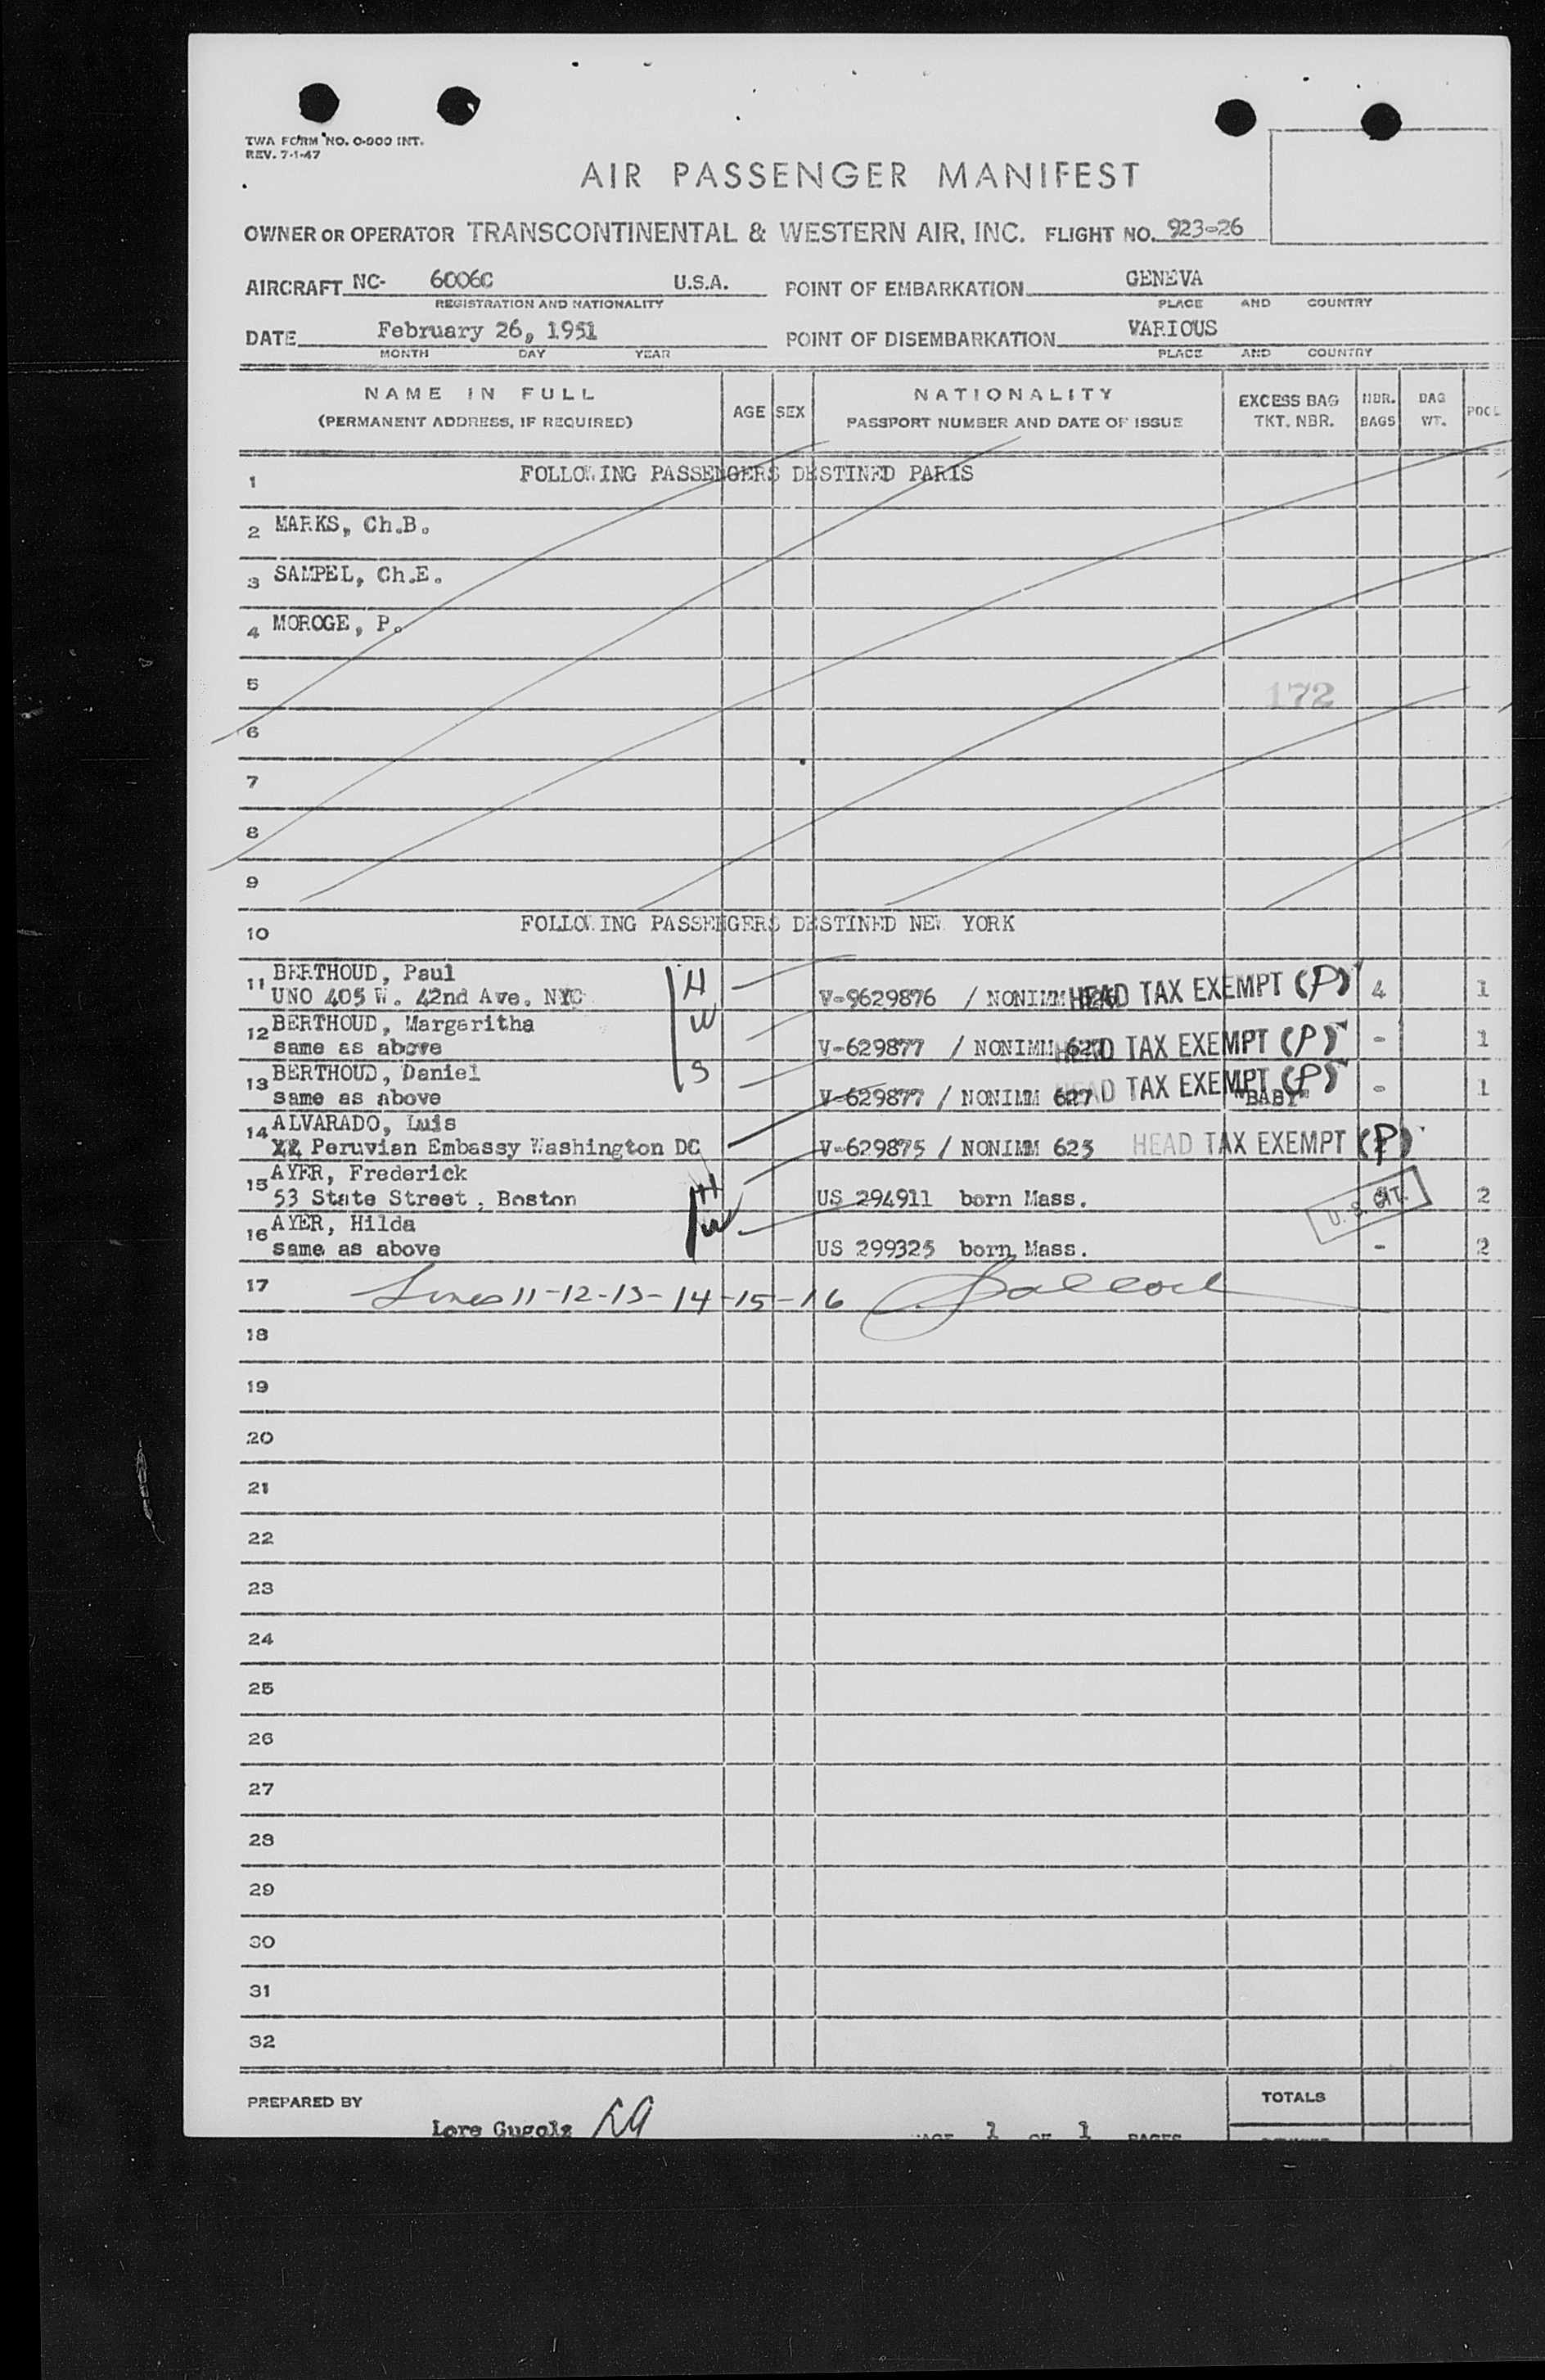 TWA FORM NO. O-900 INT.
REV. 7-1-47
AIR PASSENGER MANIFEST
OWNER OR OPERATOR TRANSCONTINENTAL & WESTERN AIR, INC. FLIGHT NO. 923-26
AIRCRAFT NC- 6006C U.S.A. POINT OF EMBARKATION GENEVA
REGISTRATION AND NATIONALITY PLACE AND COUNTRY
DATE February 26, 1951 POINT OF DISEMBARKATION VARIOUS
MONTH DAY YEAR PLACE AND COUNTRY
NAME IN FULL
(PERMANENT ADDRESS, IF REQUIRED)
AGE SEX
NATIONALITY
PASSPORT NUMBER AND DATE OF ISSUE
EXCESS BAG
TKT. NBR.
NBR.
BAGS
BAG
WT.
POCL
1 FOLLOWING PASSENGERS DESTINED PARIS
2 MARKS, Ch.B.
3 SAMPEL, Ch.E.
4 MOROGE, P.
5 172
6
7
8
9
10 FOLLOWING PASSENGERS DESTINED NEW YORK
11 BERTHOUD, Paul H
UNO 405 W. 42nd Ave. NYC V-9629876 / NONIMM HEAD TAX EXEMPT (P) 4 1
12 BERTHOUD, Margaritha W
same as above V-629877 / NONIMM 627 HEAD TAX EXEMPT (P) - 1
13 BERTHOUD, Daniel S
same as above V-629877 / NONIMM 627 HEAD TAX EXEMPT (P) "BABY" - 1
14 ALVARADO, Luis
Peruvian Embassy Washington DC V-629875 / NONIMM 625 HEAD TAX EXEMPT (P)
15 AYER, Frederick H
53 State Street, Boston US 294911 born Mass. U. S. CIT. 2
16 AYER, Hilda W
same as above US 299325 born Mass. - 2
17 Lines 11-12-13-14-15-16
18
19
20
21
22
23
24
25
26
27
28
29
30
31
32
PREPARED BY TOTALS
Lore Gugolz LG PAGE 1 OF 1 PAGES